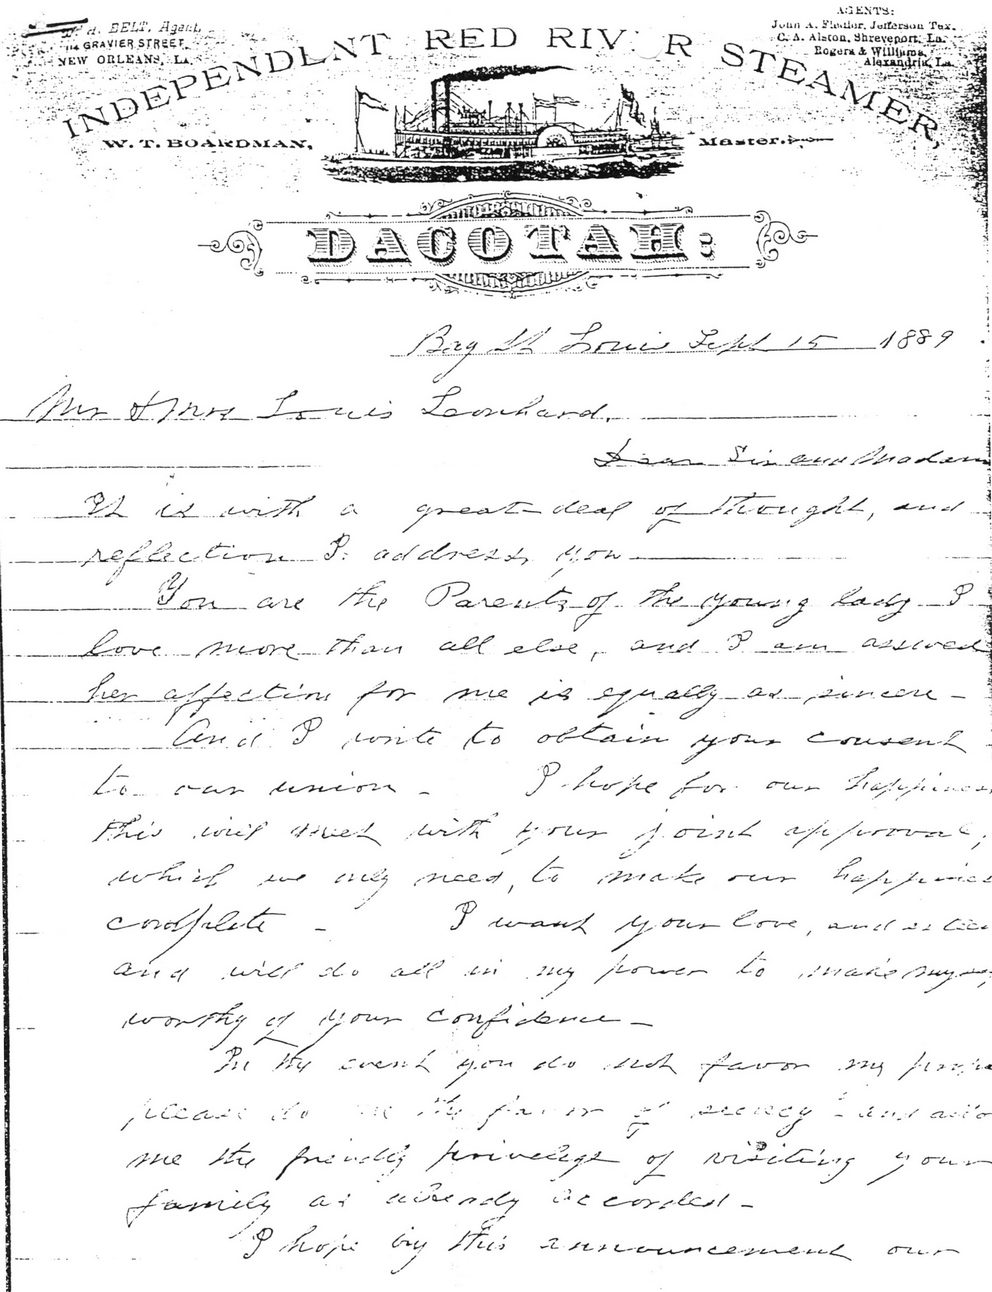 BELT, Agent,
114 GRAVIER STREET,
NEW ORLEANS, La.
AGENTS:
John A. Fiedler, Jefferson Tex.
C. A. Alston, Shreveport, La.
Rogers & Williams,
Alexandria, La.
INDEPENDENT RED RIVER STEAMER,
W. T. BOARDMAN, Master.
DACOTAH:
Bay St Louis Sept 15 1889
Mr & Mrs Louis Leonhard.
Dear Sir and Madem
It is with a great deal of thought, and
reflection I address you
You are the Parents of the young lady I
love more than all else, and I am assured
her affection for me is equally as sincere -
And I write to obtain your consent
to our union - I hope for our happiness
this will meet with your joint approval,
which we only need, to make our happines
complete - I want your love, and
and will do all in my power to make mys
worthy of your confidence -
In the event you do not favor my prop
please do me the favor of secrecy - and allo
me the friendly privelege of visiting your
family as already accorded -
I hope by this announcement our